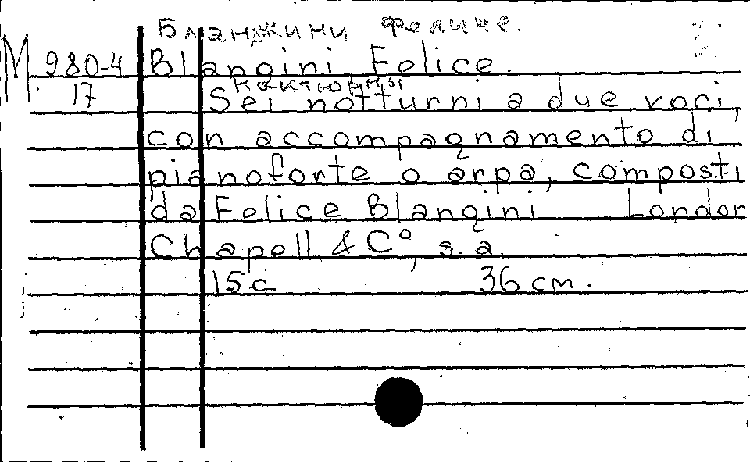 Бланжини Феличе.
M 980-4 Blangini Felice.
ноктюрны
17 Sei notturni a due voci,
con accompagnamento di
pianoforte o arpa, composti
da Felice Blangini London
Chapell & Cº, s. a
15c 36 cm.